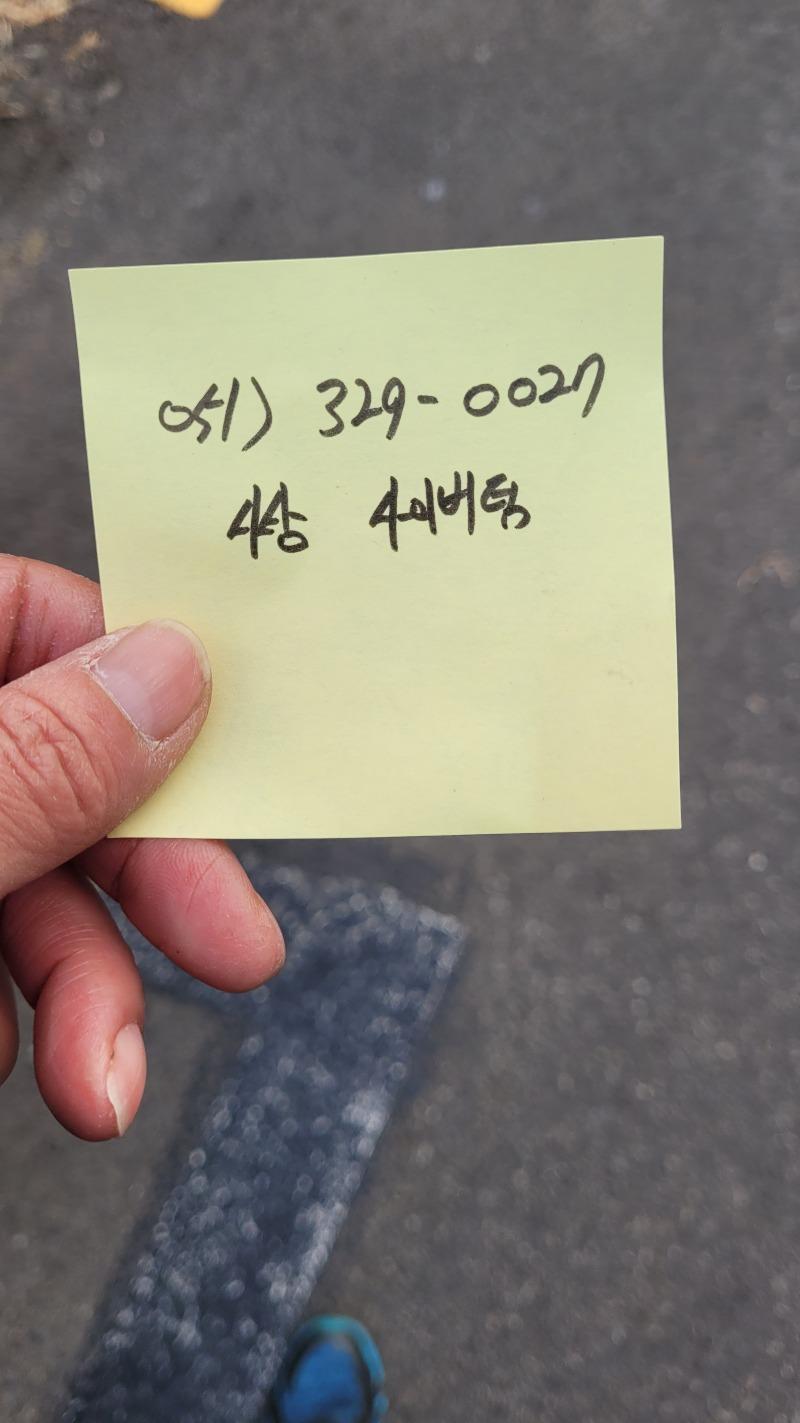 051) 329-0027
사상 사이버팀